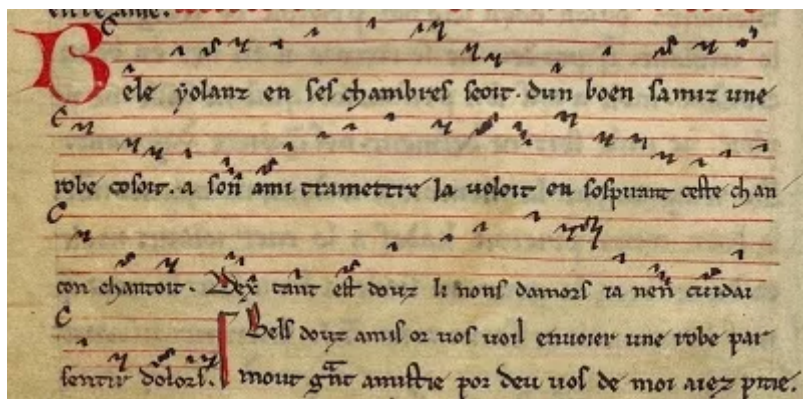 Bele yolanz en ses chambres seoit. dun boen samiz une
robe cosoit. a son ami tramettre la voloit en sospirant ceste chan
con chantoit. Dex tant est douz li nons damors ia nen cuidai
sentir dolors.
Bels douz amis or vos voil envoier une robe par
mout gñt amistie por deu vos de moi aiez pitie.